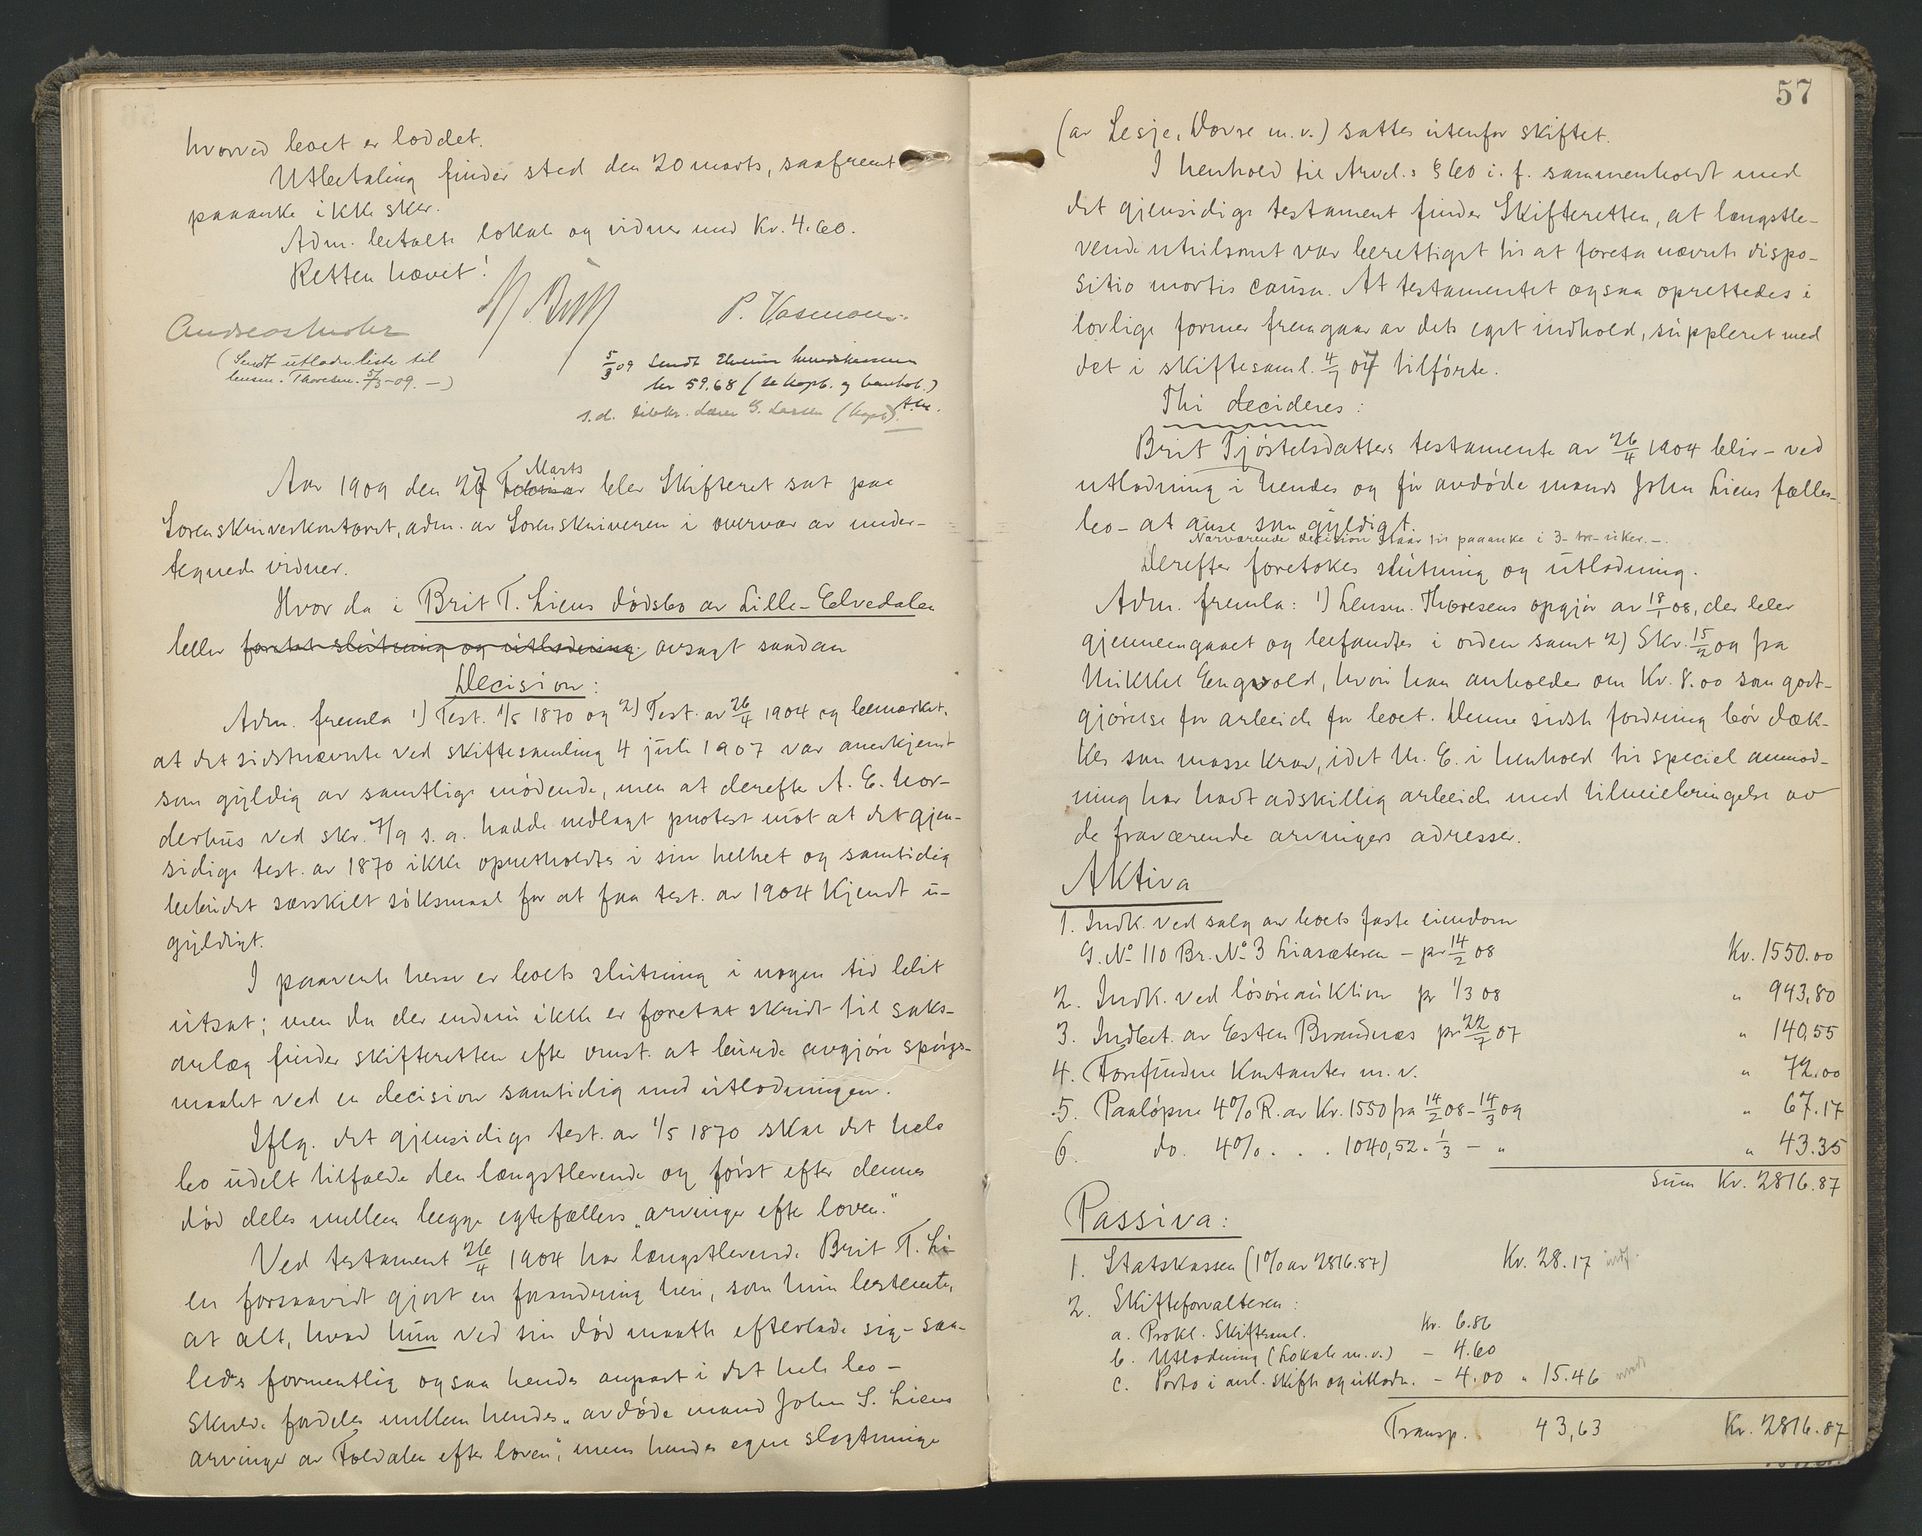 hvorved boet er loddet.
Utbetaling finder sted den 20 marts, saafremt
paaanke ikke sker.
Adm. betalte lokale og vidner med Kr. 4.60.
Retten hævet!
P. Vasmoen.
(Sendt utlodn. liste til
lensm. Thoresen 5/3-09. —)
5/3 09 Sendt
kr 59.68
s.d. (kopb)
Aar 1909 den 27 Marts blev Skifteret sat paa
Sorenskriverkontoret, adm. av Sorenskriveren i overvær av under-
tegnede vidner.
Hvor da i Brit T. Liens dødsbo av Lille-Elvedalen
blev foretat slutning og utlodning. avsagt saadan
Decision:
Adm. fremla 1) Test. 1/5 1870 og 2) Test. av 26/4 1904 og bemærket,
at det sidstnævnte ved skiftesamling 4 juli 1907 var anerkjendt
som gyldig av samtlige mødende, men at derefter A. E. Nor-
derhus ved skr. 7/9 s. a. hadde nedlagt protest mot at det gjen-
sidige test. av 1870 ikke opretholdtes i sin helhet og samtidig
bebudet særskilt søksmaal for at faa test. av 1904 kjendt u-
gyldigt.
I paavente herav er boets slutning i nogen tid blit
utsat; men da der endnu ikke er foretat skridt til saks-
anlæg finder skifteretten efter omst. at burde avgjøre spørgs-
maalet ved en decision samtidig med utlodningen.
Iflg. det gjensidige test. av 1/5 1870 skal det hele
bo udelt tilfalde den længstlevende og først efter dennes
død deles mellem begge egtefællers „arvinger efter loven."
Ved testament 26/4 1904 har længstlevende Brit T. Li-
en forsaavidt gjort en forandring heri, som hun bestemte,
at alt, hvad hun ved sin død maatte efterlade sig - saa-
ledes formentlig ogsaa hendes anpart i det hele bo -
skulde fordeles mellem hendes „avdøde mand John S. Liens
arvinger av Foldalen efter loven", mens hendes egne slegtninge
57
(av Lesje, Dovre m.v.) sattes utenfor skiftet.
I henhold til Arvel.s § 60 i. f. sammenholdt med
det gjensidige testament finder Skifteretten, at længstle-
vende utvilsomt var berettiget til at foreta nævnte dispo-
sitio mortis causa. At testamentet ogsaa oprettedes i
lovlige former fremgaar av dets eget indhold, suppleret med
det i skiftesaml. 4/7 07 tilførte.
Thi decideres:
Brit Tjøstelsdatters testamente av 26/4 1904 blir - ved
utlodning i hendes og før avdøde mands John Liens fælles-
bo - at anse som gyldigt.
Nærværende decision staar til paaanke i 3 - tre - uker. —.
Derefter foretokes slutning og utlodning.
Adm. fremla: 1) Lensm. Thoresens opgjør av 18/1 08, der blev
gjennemgaaet og befandtes i orden samt 2) Skr. 15/2 09 fra
Mikkel Engvold, hvori han anholder om Kr. 8.00 som godt-
gjørelse for arbeide for boet. Denne sidste fordring bør dæk-
kes som massekrav, idet M. E. i henhold til speciel anmod-
ning har hadt adskillig arbeide med tilveiebringelse av
de fraværende arvingers adresser.
Aktiva
1. Indk. ved salg av boets faste eiendom
G. No 110 Br. No 3 Liasæteren - pr 14/2 08 Kr. 1550.00
2. Indk. ved løsøreauktion pr 1/3 08 " 943,80
3. Indbet. av Esten Brandnæs pr 22/7 07 " 140,55
4. Forefundne Kontanter m. v. " 72.00
5. Paaløpne 4% R. av Kr. 1550 fra 14/2 08 - 14/3 09 " 67.17
6. do. 4% . . . 1040,52 " 1/3 - " " 43.35
Sum Kr. 2816.87
Passiva:
1. Statskassen (1% av 2816.87) Kr. 28.17 indf.
2. Skifteforvalteren:
a. Prokl. Skiftesaml. Kr. 6.86
b. Utlodning (Lokale m.v.) - 4.60
c. Porto i anl. skifte og utlodn. - 4.00 " 15.46
Transp. 43,63 Kr. 2816.87